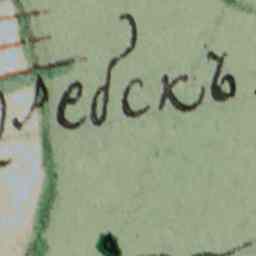 лебскъ